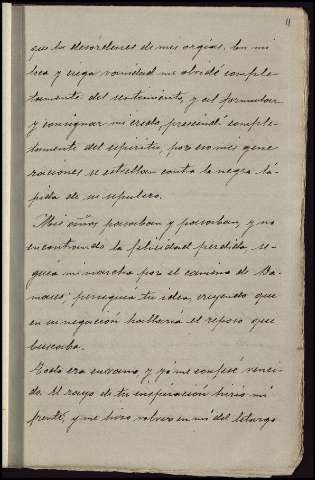 11
que los desórdenes de mis orgías. En mi
loca y ciega vanidad me olvidé comple-
tamente del sentimiento, y al formular
y consignar mi credo, prescindí comple-
tamente del espíritu, por eso mis gene
raciones se estrellan contra la negra lá-
pida de su sepulcro.
Mis años pasaban y pasaban, y no
encontrando la felicidad perdida, se-
guía mi marcha por el camino de Da-
masco; perseguía tu idea, creyendo que
en su negación hallaría el reposo que
buscaba.
Todo era en vano, y yo me confesé venci-
do. El rayo de tu inspiración hirió mi
frente, y me hizo volver en mí del letargo